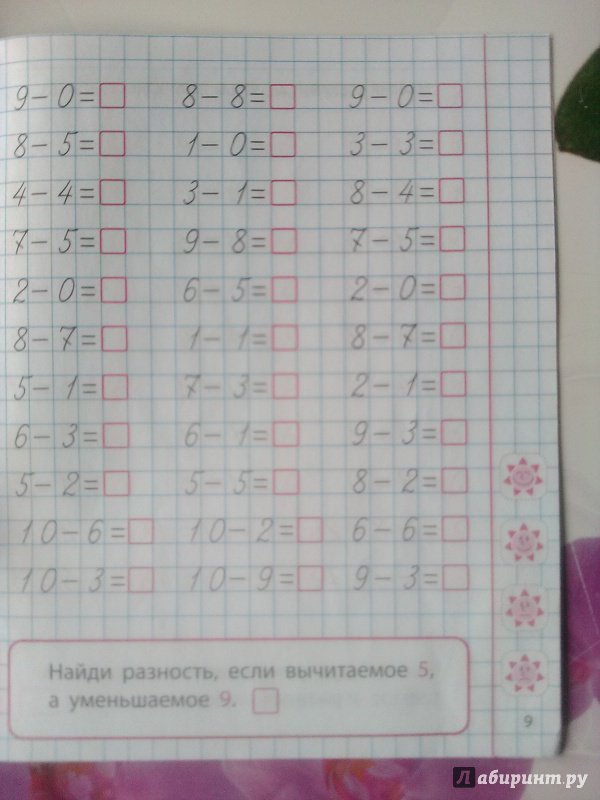 9 - 0 = 8 - 8 = 9 - 0 =
8 - 5 = 1 - 0 = 3 - 3 =
4 - 4 = 3 - 1 = 8 - 4 =
7 - 5 = 9 - 8 = 7 - 5 =
2 - 0 = 6 - 5 = 2 - 0 =
8 - 7 = 1 - 1 = 8 - 7 =
5 - 1 = 7 - 3 = 2 - 1 =
6 - 3 = 6 - 1 = 9 - 3 =
5 - 2 = 5 - 5 = 8 - 2 =
10 - 6 = 10 - 2 = 6 - 6 =
10 - 3 = 10 - 9 = 9 - 3 =
Найди разность, если вычитаемое 5,
а уменьшаемое 9.
9
Лабиринт.ру